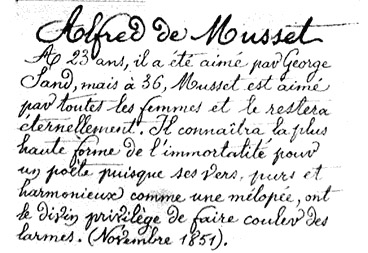 Alfred de Musset
A 23 ans, il a été aimé par George
Sand, mais à 36, Musset est aimé
par toutes les femmes et le restera
éternellement. Il connaîtra la plus
haute forme de l'immortalité pour
un poète puisque ses vers, purs et
harmonieux comme une mélopée, ont
le divin privilège de faire couler des
larmes. (Novembre 1851).